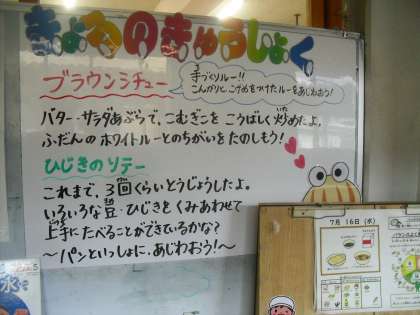 きょうのきゅうしょく
ブラウンシチュー
手づくりルー!!
こんがりと、こげめをつけたルーをあじわおう!
バター・サラダあぶらで、こむぎこを こうばしく 炒めたよ。
ふだんの ホワイトルーとのちがいを たのしもう!
ひじきのソテー
これまで、3回くらいとうじょうしたよ。
いろいろな豆・ひじきを くみあわせて
上手に たべることが できているかな?
〜パンといっしょに、あじわおう!〜
7月 16日 (水)